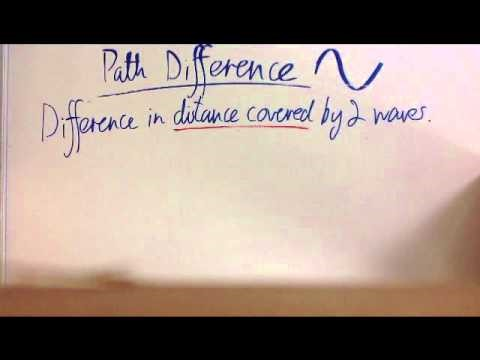 Path Difference
Difference in distance covered by 2 waves.